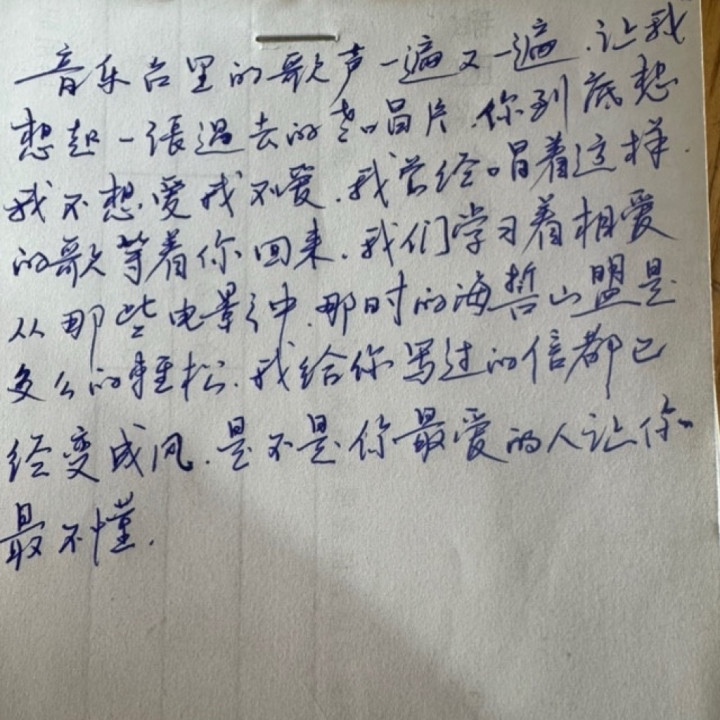 音乐台里的歌声一遍又一遍.让我
想起一張過去的老唱片.你到底想
我不想愛我不爱.我曾经唱着这样.
的歌等着你回来.我们学习着相爱
从那些电影中.那时的海哲山盟是
多么的轻松.我给你写过的信都已
经变成风.是不是你最爱的人让你
最不懂.